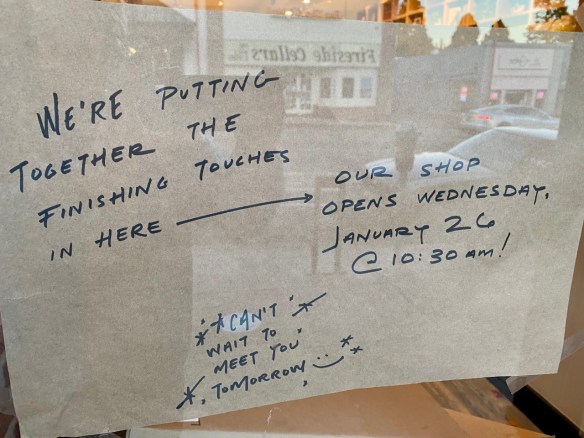 Fireside Cellars
WE'RE PUTTING
TOGETHER THE
FINISHING TOUCHES
IN HERE →
OUR SHOP
OPENS WEDNESDAY,
JANUARY 26
@ 10:30 AM!
"CAN'T
WAIT TO
MEET YOU"
TOMORROW :)